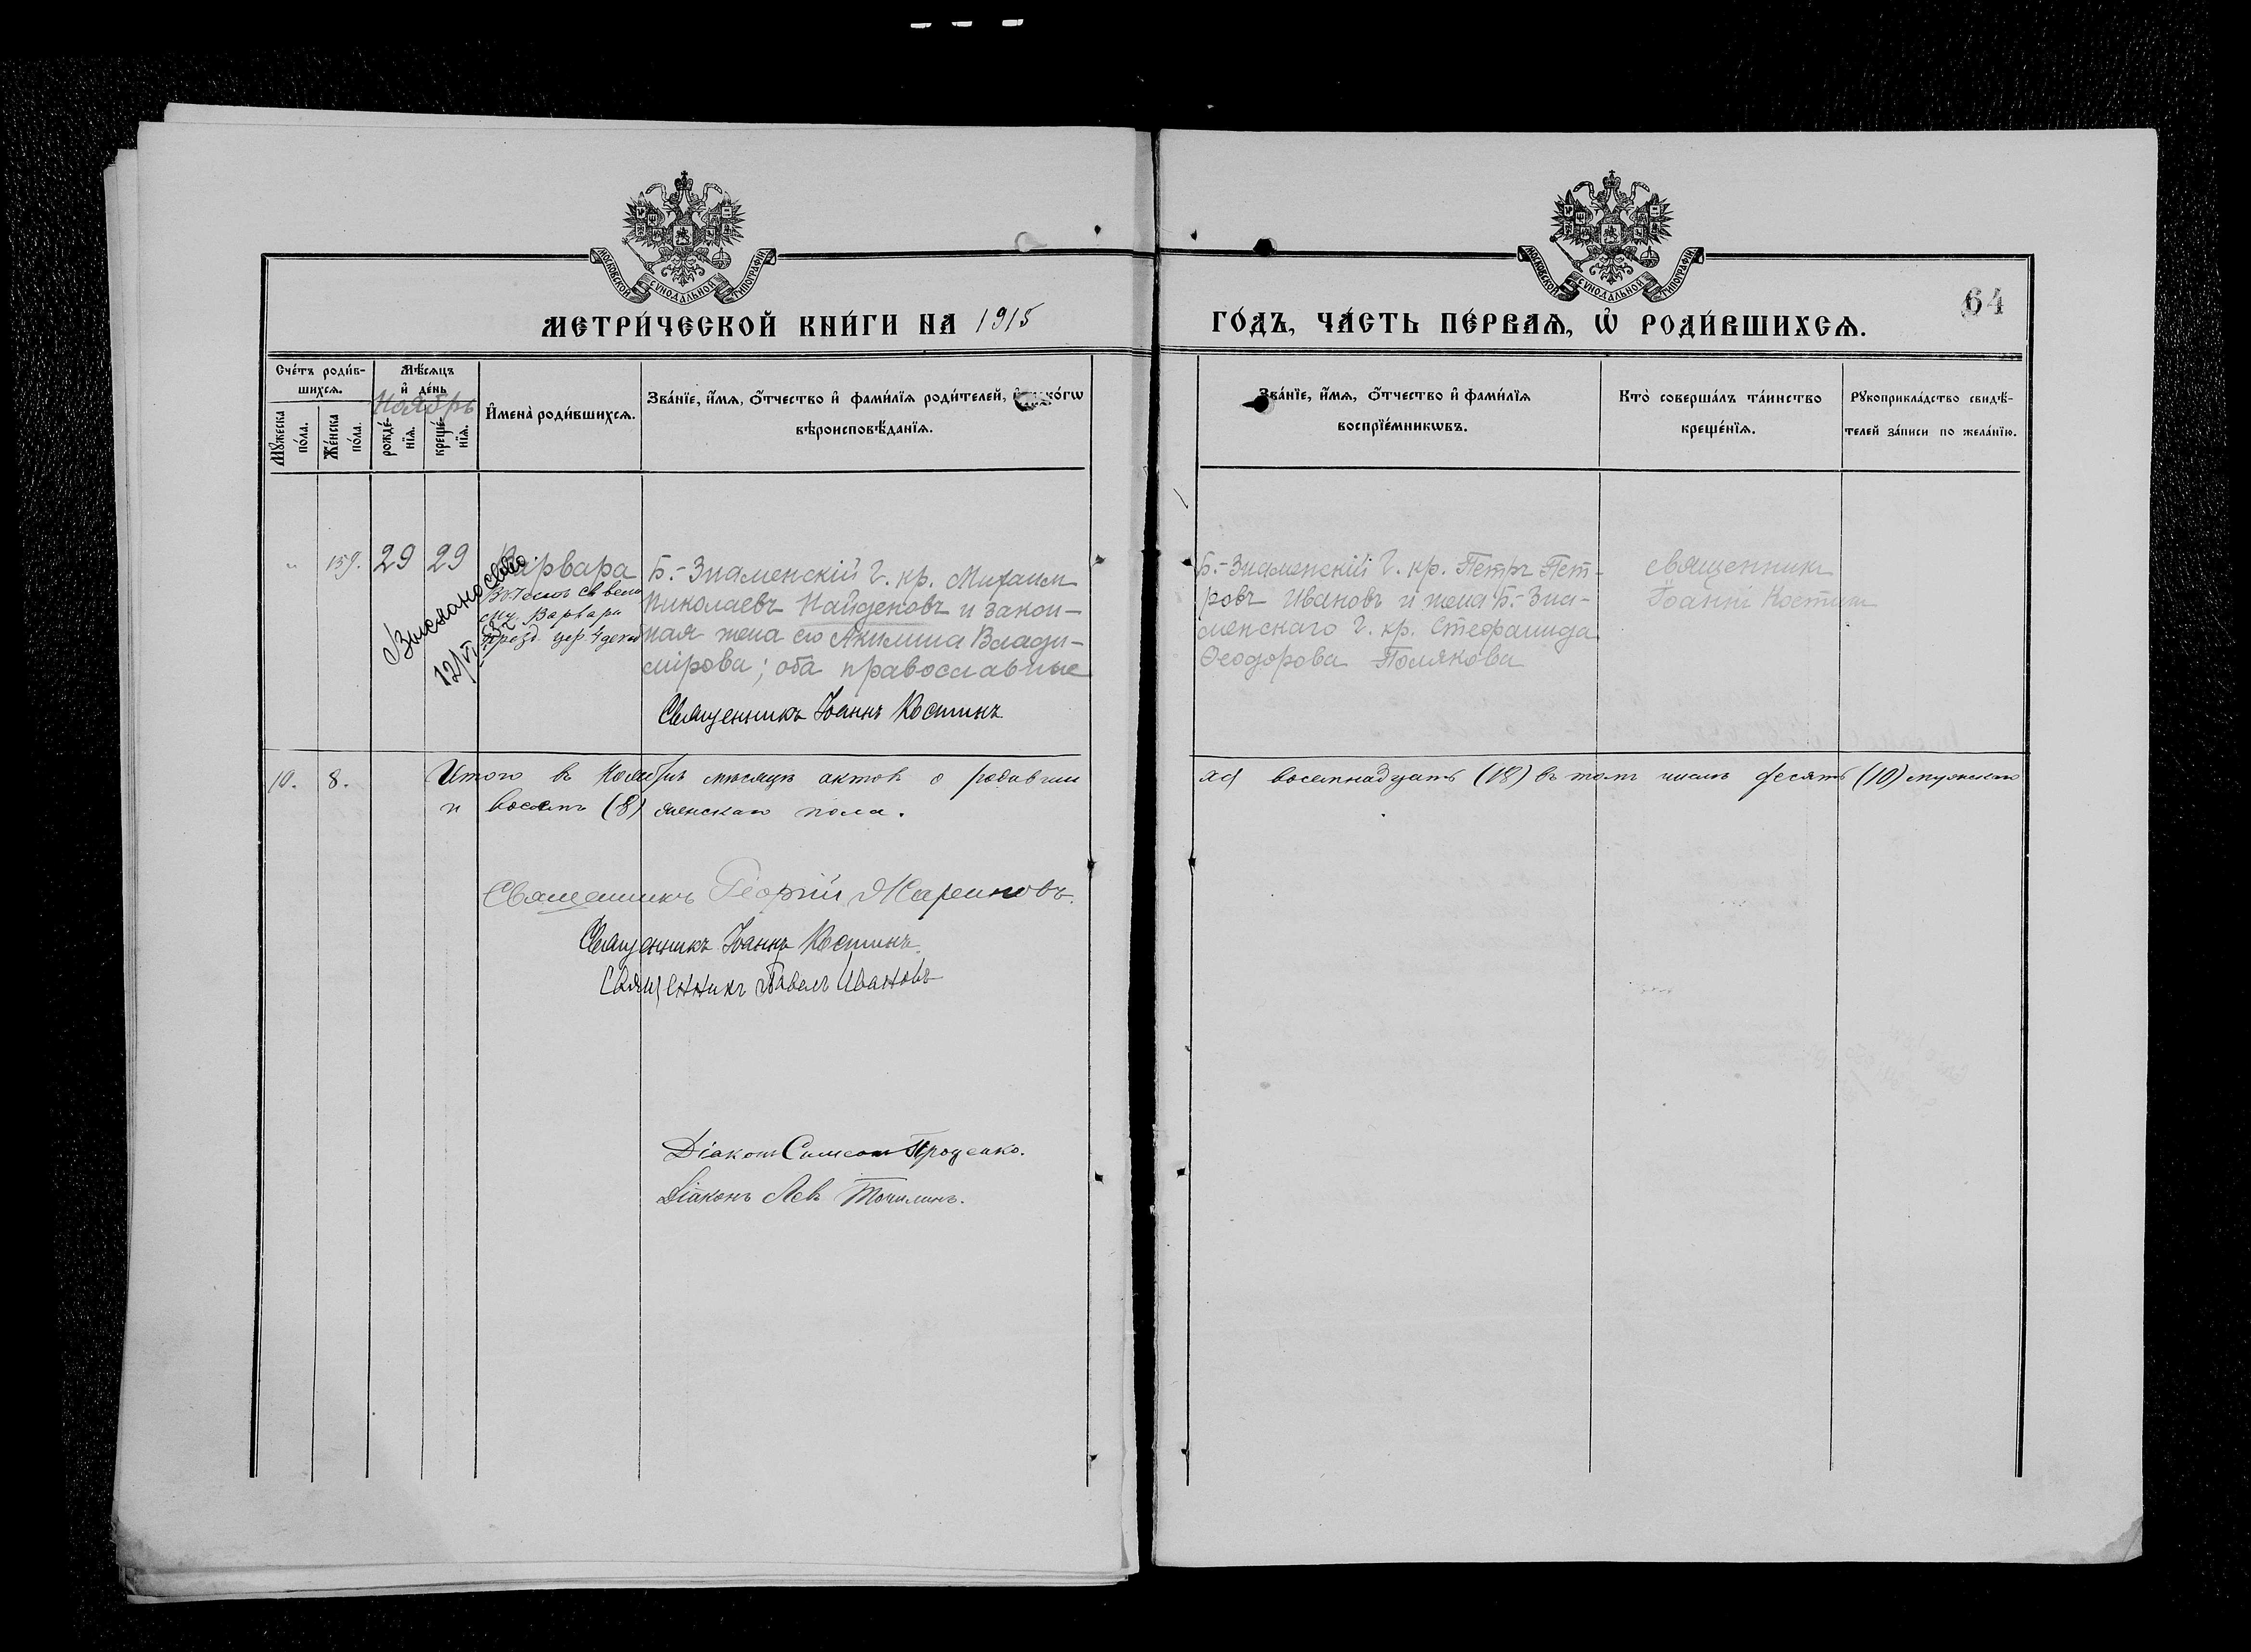 МОСКОВСКОЙ СѴНОДАЛЬНОЙ ТИПОГРАФІИ
МОСКОВСКОЙ СѴНОДАЛЬНОЙ ТИПОГРАФІИ
64
МЕТРИ́ЧЕСКОЙ КНИ́ГИ НА 1915
ГО́ДЪ, ЧА́СТЬ ПЕ́РВАѦ, Ѽ РОДИ́ВШИХСѦ.
Сче́тъ роди́в-
шихсѧ.
Мꙋ́жеска по́ла.
Же́нска по́ла.
Мѣ́сѧцъ
и҆ де́нь
Ноябрь
рожде́-нїѧ.
креще́-нїѧ.
И҆мена̀ роди́вшихсѧ.
Зва́нїе, и҆́мѧ, ѻ҆́тчество и҆ фами́лїѧ роди́телей,
вѣроисповѣ́данїѧ.
Зва́нїе, и҆́мѧ, ѻ҆́тчество и҆ фами́лїѧ
воспрїе́мникѡвъ.
Кто̀ соверша́лъ та́инство
креще́нїѧ.
Рꙋкоприкла́дство свидѣ́-
телей за́писи по жела́нїю.
" 159. 29 29 Варвара
Варвары
12/VI
Б.-Знаменскій г. кр. Михаилъ
Николаевъ Найденовъ и закон-
ная жена его Акилина Влади-
мірова; оба православные
Священникъ Іоаннъ Костинъ
Б.-Знаменскій г. кр. Петръ Пет-
ровъ Ивановъ и жена Б.-Зна-
менскаго г. кр. Стефанида
Ѳеодорова Полякова
священникъ
Іоаннъ Костинъ
10. 8. Итого въ Ноябрѣ мѣсяцѣ актовъ о родивши
хся восемнадцать (18) въ томъ числѣ десять (10) мужскаго
и восемь (8) женскаго пола.
Священникъ Георгій
Священникъ Іоаннъ Костинъ.
Священникъ Павелъ Ивановъ
Діаконъ Симеонъ Проценко.
Діаконъ Левъ Точилинъ.